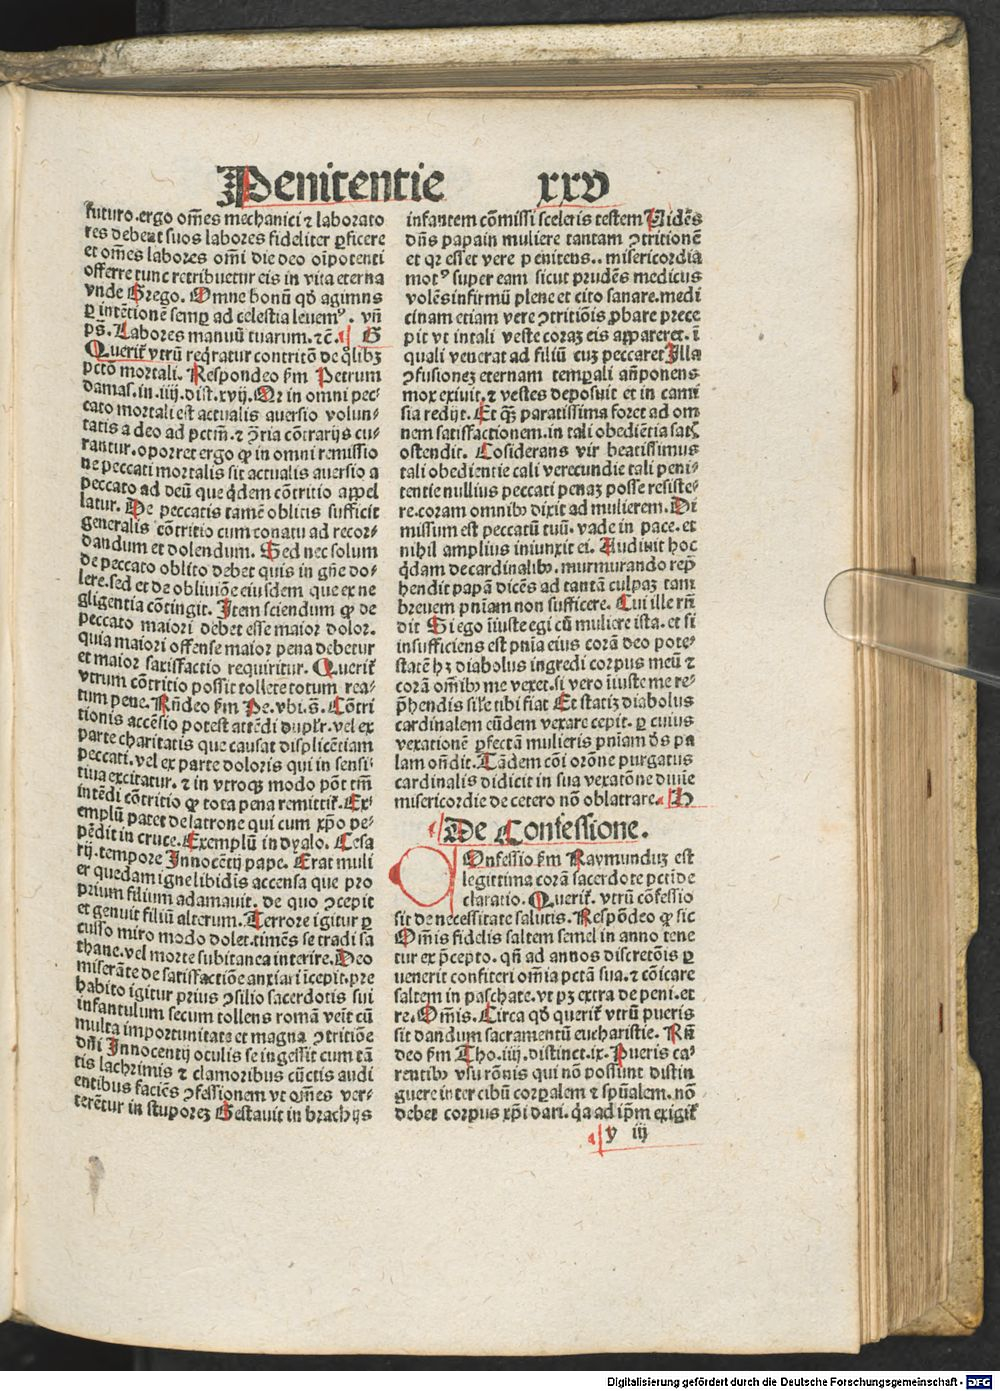 Penitentie xxv
futuro.ergo om̄es mechanici ⁊ laborato
res debeāt suos labores fideliter ꝑficere
et om̄es labores om̄i die deo oīpotenti
offerre tunc retribuetur eis in vita eterna
vnde Grego. Omne bonū qd̓ agimus
ꝑ intētionē semꝑ ad celestia leuemꝰ. vn̄
ps̄. Labores manuū tuarum. ⁊c̄. G
Querit̄ vtrū reqͥratur contritō de qͦlibꝫ
pctō mortali. Respondeo ẜm Petrum
damas. in .iiij. dist. xvij. Qꝛ in omni pec-
cato mortali est actualis auersio volun-
tatis a deo ad pctm̄. ⁊ ꝯ̄ria cōtrarijs cu-
rantur. oportet ergo ꝙ in omni remissio
ne peccati mortalis sit actualis auersio a
peccato ad deū que qͥdem cōtritio appel
latur. De peccatis tamē oblitis sufficit
generalis cōtritio cum conatu ad recor-
dandum et dolendum. Sed nec solum
de peccato oblito debet quis in gn̄e do-
lere. sed et de obliuiōe eiusdem que ex ne
gligentia cōtingit. Item sciendum ꝙ de
peccato maiori debet esse maior dolor.
quia maiori offense maior pena debetur
et maior satisfactio requiritur. Querit̄
vtrum cōtritio possit tollere totum rea-
tum pene. Rn̄deo ẜm Pe. vbi. s̄. Cōtri
tionis accēsio potest attēdi duplr̄. vel ex
parte charitatis que causat displicētiam
peccati. vel ex parte doloris qui in sensi-
tiua excitatur. ⁊ in vtroqꝫ modo pōt tm̄
intēdi cōtritio ꝙ tota pena remittit̄. Ex-
emplū patet de latrone qui cum xp̄o pe-
pēdit in cruce. Exemplū in dyalo. Cesa
rij. tempore Innocētij pape. Erat muli
er quedam igne libidis accensa que pro
prium filium adamauit. de quo ꝯcepit
et genuit filiū alterum. Terrore igitur ꝑ
cusso miro modo dolet. timēs se tradi sa
thane. vel morte subitanea interire. Deo
miserāte de satisfactiōe anxiari īcepit. pre
habito igitur prius ꝯsilio sacerdotis sui
infantulum secum tollens romā veit cū
multa importunitate et magna ꝯtritiōe
dn̄i Innocentij oculis se ingessit cum tā
tis lachrimis ⁊ clamoribus cūctis audi
entibus faciēs ꝯfessionem vt om̄es ver-
terētur in stuporeꝫ Gestauit in brachijs
infantem cōmissi sceleris testem Uidēs
dn̄s papa in muliere tantam ꝯtritionē
et qꝛ esset vere penitens.. misericordia
motꝰ super eam sicut prudēs medicus
volēs infirmū plene et cito sanare. medi
cinam etiam vere ꝯtritiōis ꝓbare prece
pit vt in tali veste coraꝫ eis appareret. ī
quali venerat ad filiū cuꝫ peccaret Illa
ꝯfusioneꝫ eternam temꝑali an̄ponens
mox exiuit. ⁊ vestes deposuit et in cami
sia redijt. Et qꝫ paratissima foret ad om
nem satisfactionem. in tali obediētia satꝭ
ostendit. Cōsiderans vir beatissimus
tali obedientie tali verecundie tali peni-
tentie nullius peccati penaꝫ posse resiste-
re. coram omnibꝰ dixit ad mulierem. Di
missum est peccatū tuū. vade in pace. et
nihil amplius iniunxit ei. Audiuit hoc
qͥdam de cardinalibꝰ. murmurando rep̄
hendit papā dicēs ad tantā culpaꝫ tam
breuem pn̄iam non sufficere. Cui ille rn̄
dit Si ego īiuste egi cū muliere ista. et si
insufficiens est pn̄ia eius corā deo pote-
statē hꝫ diabolus ingredi corpus meū ⁊
corā om̄ibꝰ me vexet. si vero īiuste me re-
p̄hendis sil̄e tibi fiat Et statiꝫ diabolus
cardinalem eūdem vexare cepit. ꝑ cuius
vexationē ꝑfectā mulieris pn̄iam dꝰs pa
lam on̄dit. Tādem cōi orōne purgatus
cardinalis didicit in sua vexatōne diuie
misericordie de cetero nō oblatrare. H
De Confessione.
Onfessio ẜm Raymunduꝫ est
legittima corā sacerdote pcti̅ de
claratio. Querit̄. vtrū cōfessio
sit de necessitate salutis. Respōdeo ꝙ sic
Om̄is fidelis saltem semel in anno tene
tur ex p̄cepto. qn̄ ad annos discretōis ꝑ
uenerit confiteri om̄ia pctā sua. ⁊ cōicare
saltem in paschate. vt pꝫ extra de peni. et
re. Om̄is. Circa qd̓ querit̄ vtrū pueris
sit dandum sacramentū eucharistie. Rn̄
deo ẜm Tho. iiij. distinct. ix. Pueris ca-
rentibꝰ vsu rōnis qui nō possunt distin
guere inter cibū corꝑalem ⁊ spūalem. nō
debet corpus xp̄i dari. qͥa ad ip̄m exigit̄
y iij
Digitalisierung gefördert durch die Deutsche Forschungsgemeinschaft - DFG